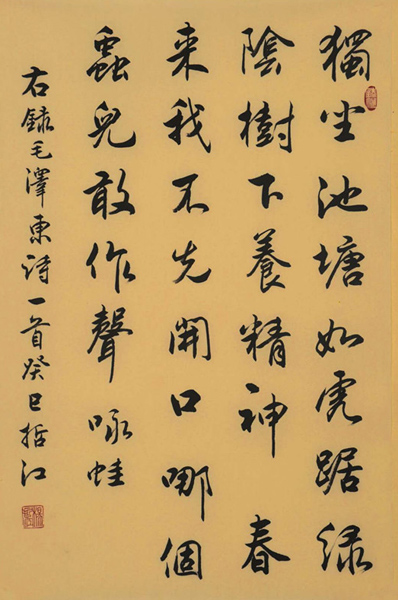 獨坐池塘如虎踞緑
陰樹下養精神 春
来我不先開口哪個
蟲兒敢作聲 咏蛙
右録毛澤東詩一首癸巳括江